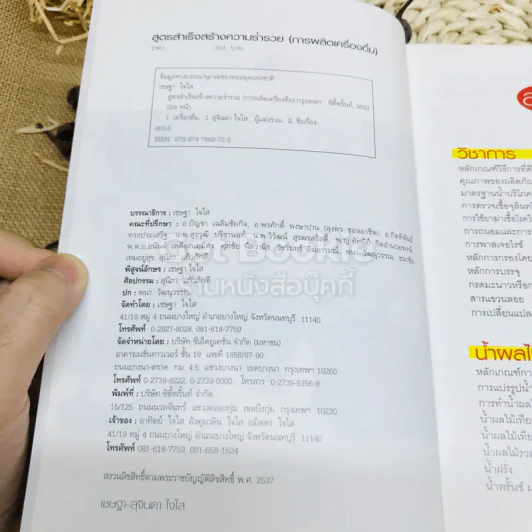 สูตรสำเร็จสร้างความร่ำรวย (การผลิตเครื่องดื่ม)
ราคา 350 บาท
ข้อมูลทางบรรณานุกรมของหอสมุดแห่งชาติ
เชษฐา ใจใส
สูตรสำเร็จสร้างความร่ำรวย (การผลิตเครื่องดื่ม) กรุงเทพฯ ซิตี้พริ้นท์, 2550
1. เครื่องดื่ม. 1. สุจินดา ใจใส ผู้แต่งร่วม. II. ชื่อเรื่อง.
663.6
ISBN 978-974-7660-72-2
บรรณาธิการ : เชษฐา ใจใส
คณะที่ปรึกษา :
พิสูจน์อักษร : เชษฐา ใจใส
ศิลปกรรม : สุนิภา แก้วภักดี
ปก : พนา วัฒนุวรรณ
จัดทำโดย : เชษฐา ใจใส
41/19 หมู่ 4 ถนนบางใหญ่ อำเภอบางใหญ่ จังหวัดนนทบุรี 11140
โทรศัพท์ 0-2927-8028, 081-618-7759
จัดจำหน่ายโดย : บริษัท ซีเอ็ดยูเคชั่น จำกัด (มหาชน)
อาคารเนชั่นทาวเวอร์ ชั้น 19 เลขที่ 1858/87-90
ถนนบางนา-ตราด กม. 4.5 แขวงบางนา เขตบางนา กรุงเทพฯ 10260
โทรศัพท์ 0-2739-8222, 0-2739-8000, โทรสาร 0-2739-8356-9
พิมพ์ที่ : บริษัท ซิตี้พริ้นท์ จำกัด
15/125 ถนนนวลจันทร์ แขวงคลองกุ่ม เขตบึงกุ่ม กรุงเทพฯ 10230
เจ้าของ : อาทิตย์ ใจใส, อังศุมาลิน ใจใส, อมิตตา ใจใส
41/19 หมู่ 4 ถนนบางใหญ่ อำเภอบางใหญ่ จังหวัดนนทบุรี 11140
โทรศัพท์ 081-618-7759, 081-659-1524
สงวนลิขสิทธิ์ตามพระราชบัญญัติลิขสิทธิ์ พ.ศ. 2537
เชษฐา-สุจินดา ใจใส
วิชาการ
หลักเกณฑ์วิธีการที่ดี
คุณภาพของผลิตภัณ
มาตรฐานน้ำบริโภค
การตรวจเชื้อจุลินท
การใช้ยาฆ่าเชื้อโรคใ
การถนอมและการ
การพาสเจอไรซ์
หลักการกรองโดย
หลักการบรรจุ
กรดมะนาวหรือก
สารแขวนลอย
การเปลี่ยนแปล
น้ำผลไ
หลักเกณฑ์กา
การแปรรูปน้ำ
การทำน้ำผลไ
น้ำผลไม้เทีย
น้ำผลไม้เทีย
น้ำผลไม้รวม
น้ำฝรั่ง
น้ำพริ้นซ์ เ
ร้านหนังสือบุ๊คกี้